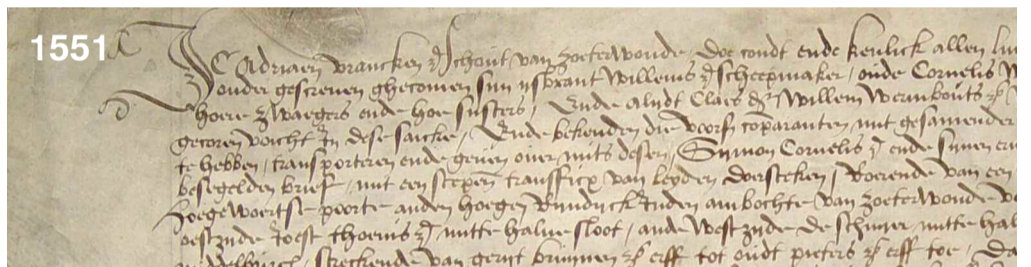 1551
IC Adriaen vrancken z Schout van zoeterwoude doe condt ende kenlick allen lui
onder gescreven ghecomen sijn ijsbrant willems z scheepmaker, ende Cornelis W
hoere zwaegers ende hoer susters, Ende alydt Claes dr willem wermbouts z
gecoren voicht In dese saicke, Ende bekenden die voors comparanten mit gesamender
te hebben, transporteren ende geven over mits desen, Symon Cornelis z ende sijnen er
besegelden brief, mit een scepen transfixe van leyden doersteken, Roerende van een
hoegewoertse poorte anden hoegen Rijndijck Inden ambochte van zoeterwoude
oestzijde Joest thonis z mitte halve sloot, ande westzijde de schuer mitte hal
middelburch, streckende van gerijt krijnnen z erff tot oudt pieters z erff toe,